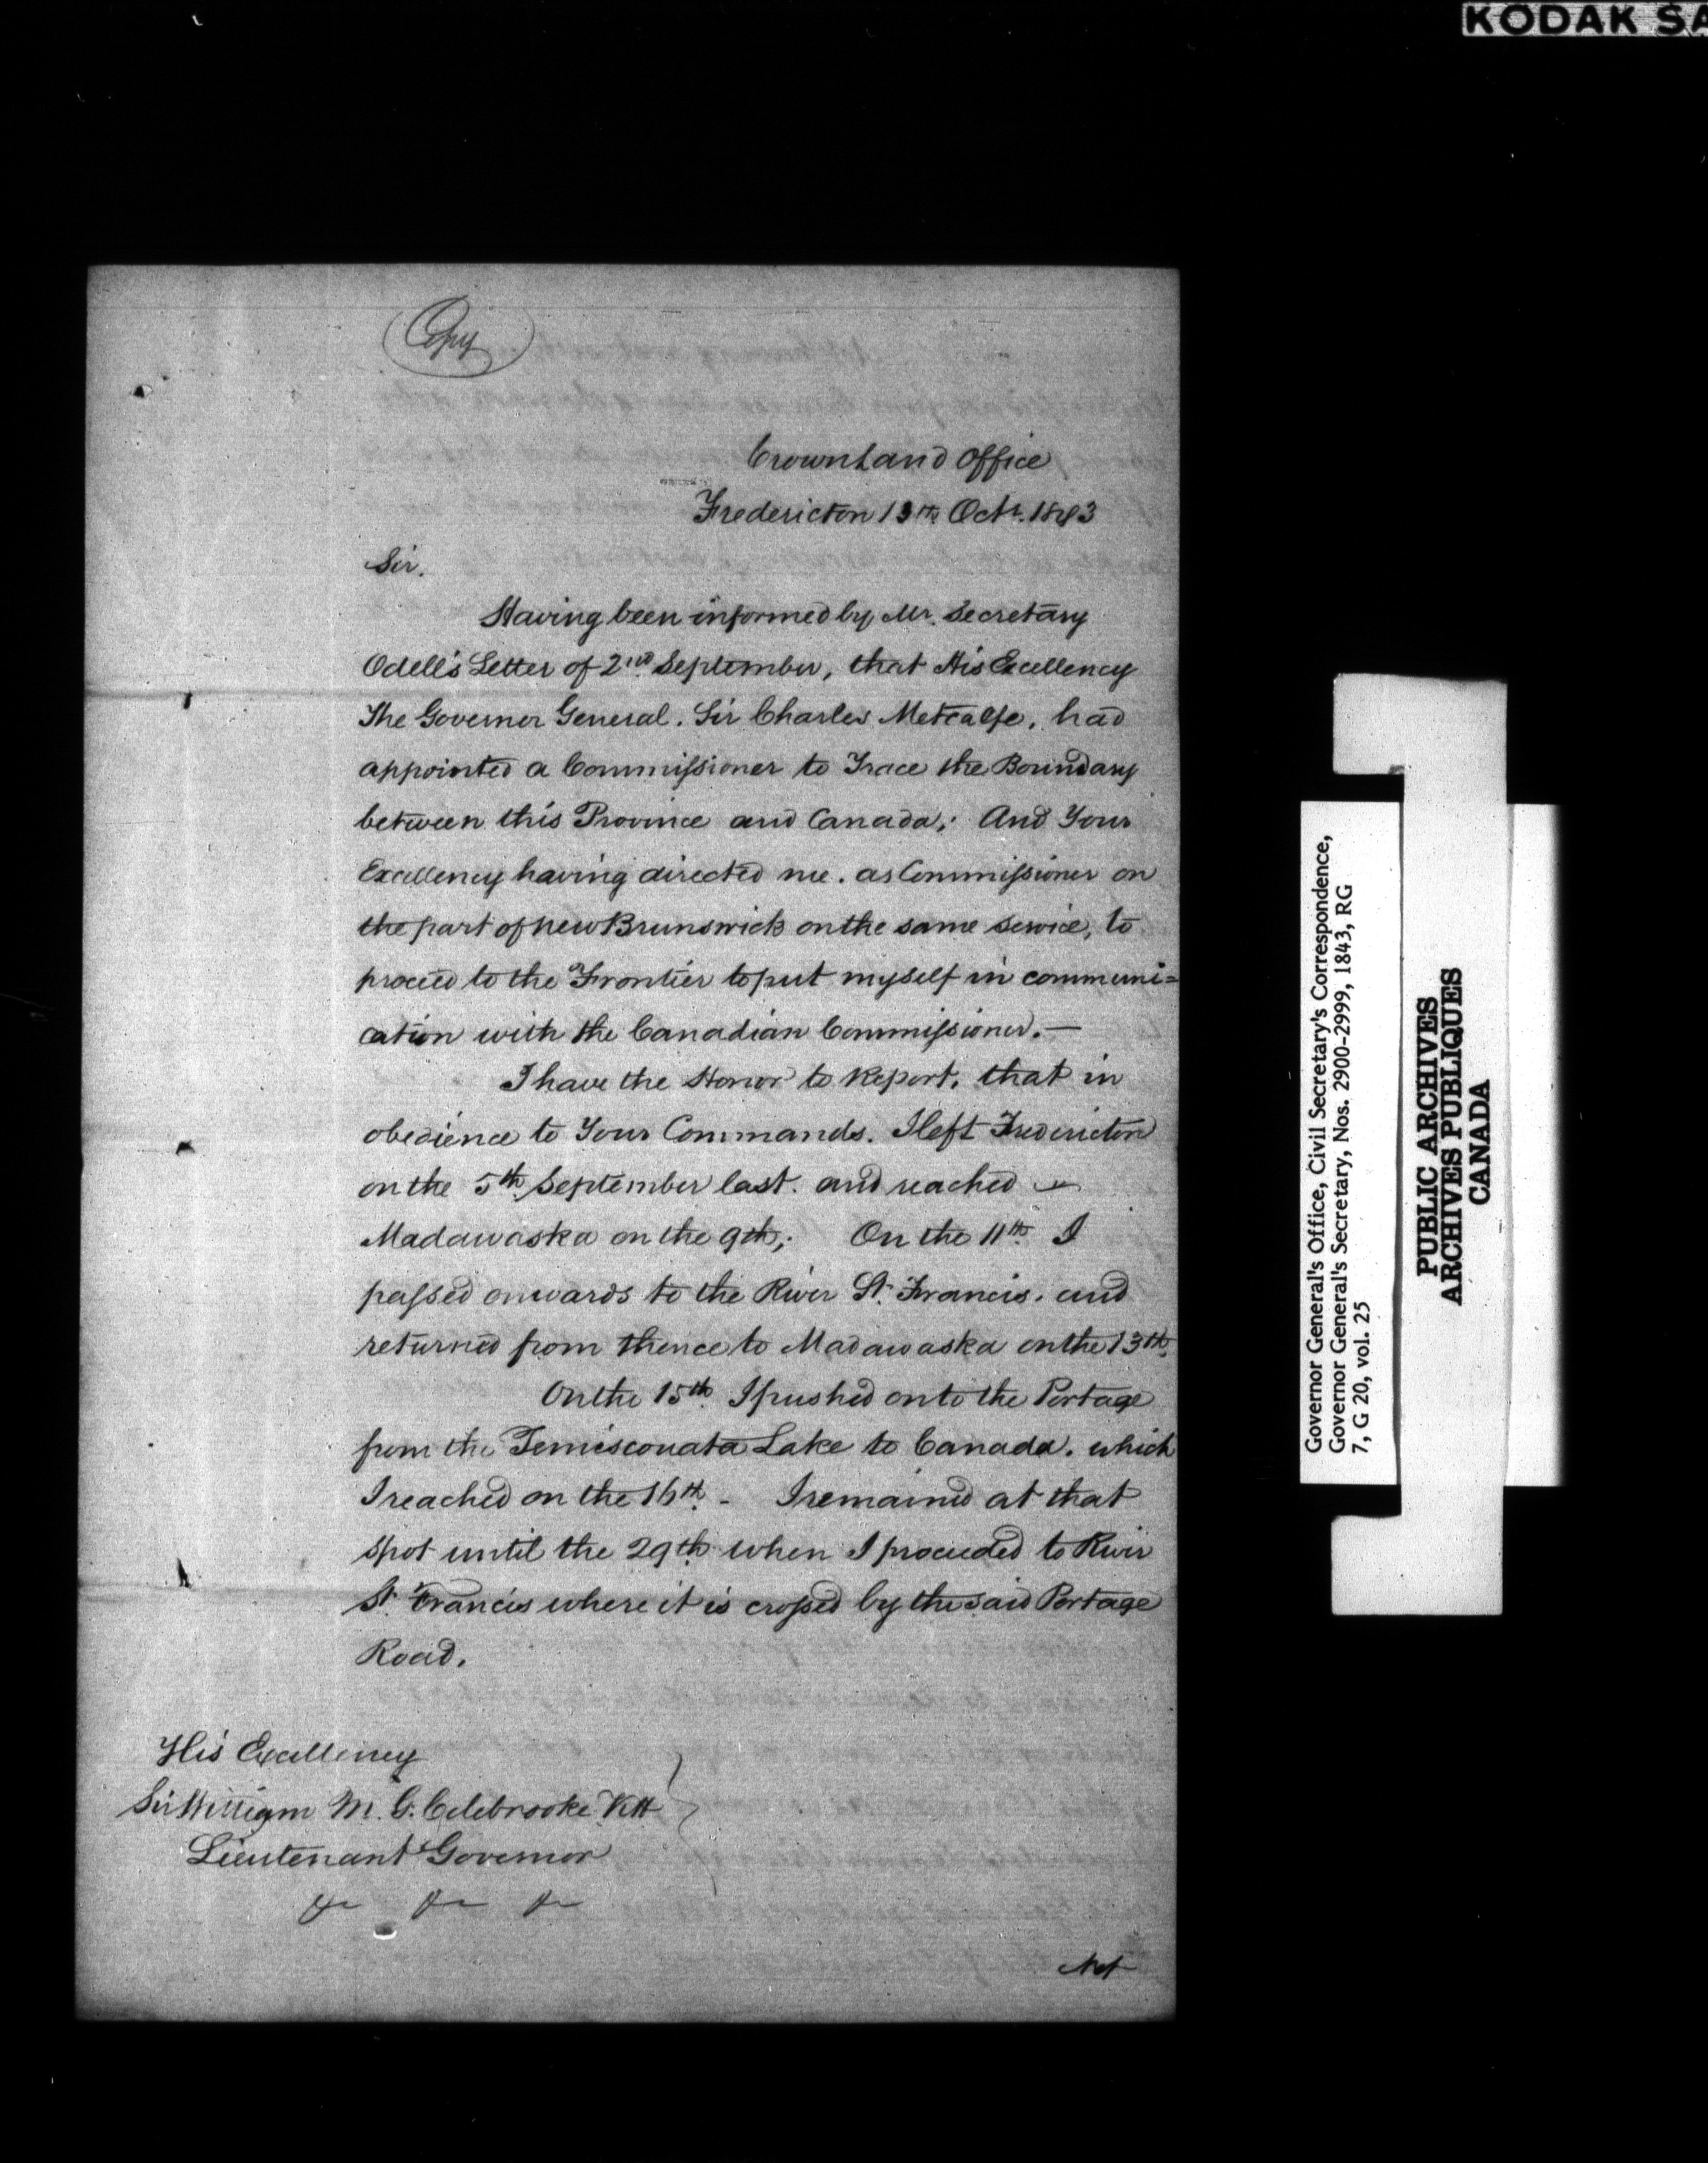 KODAK SA
Copy
Crown Land Office
Fredericton 13th Octr. 1843
Sir.
Having been informed by Mr. Secretary
Odell's Letter of 2nd September, that His Excellency
The Governor General. Sir Charles Metcalfe, had
appointed a Commissioner to Trace the Boundary
between this Province and Canada; And Your
Excellency having directed me. as Commissioner on
the part of New Brunswick on the same service, to
proceed to the Frontier to put myself in communi=
cation with the Canadian Commissioner. —
I have the Honor to Report, that in
obedience to Your Commands. I left Fredericton
on the 5th September last. and reached —
Madawaska on the 9th; On the 11th I
passed onwards to the River St. Francis. and
returned from thence to Madawaska on the 13th.
On the 15th I pushed on to the Portage
from the Temisconata Lake to Canada. which
I reached on the 16th - I remained at that
spot until the 29th when I proceeded to River
St. Francis where it is crossed by the said Portage
Road.
His Excellency
Sir William M. G. Colebrooke KH
Lieutenant Governor
&c &c &c
Not
Governor General's Office, Civil Secretary's Correspondence,
Governor General's Secretary, Nos. 2900-2999, 1843, RG
7, G 20, vol. 25
PUBLIC ARCHIVES
ARCHIVES PUBLIQUES
CANADA